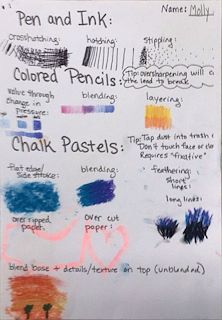 Name: Molly
Pen and Ink:
crosshatching: hatching: stippling:
Colored Pencils:
Tip: oversharpening will c
the lead to break
value through
change in
pressure:
blending:
layering:
Chalk Pastels:
Tip: Tap dust into trash
Don't touch face or
Requires "fixative"
flat edge/
side stroke:
blending:
feathering:
short
lines:
long lines:
over ripped
paper:
over cut
paper:
blend base + details/texture on top (unblended)